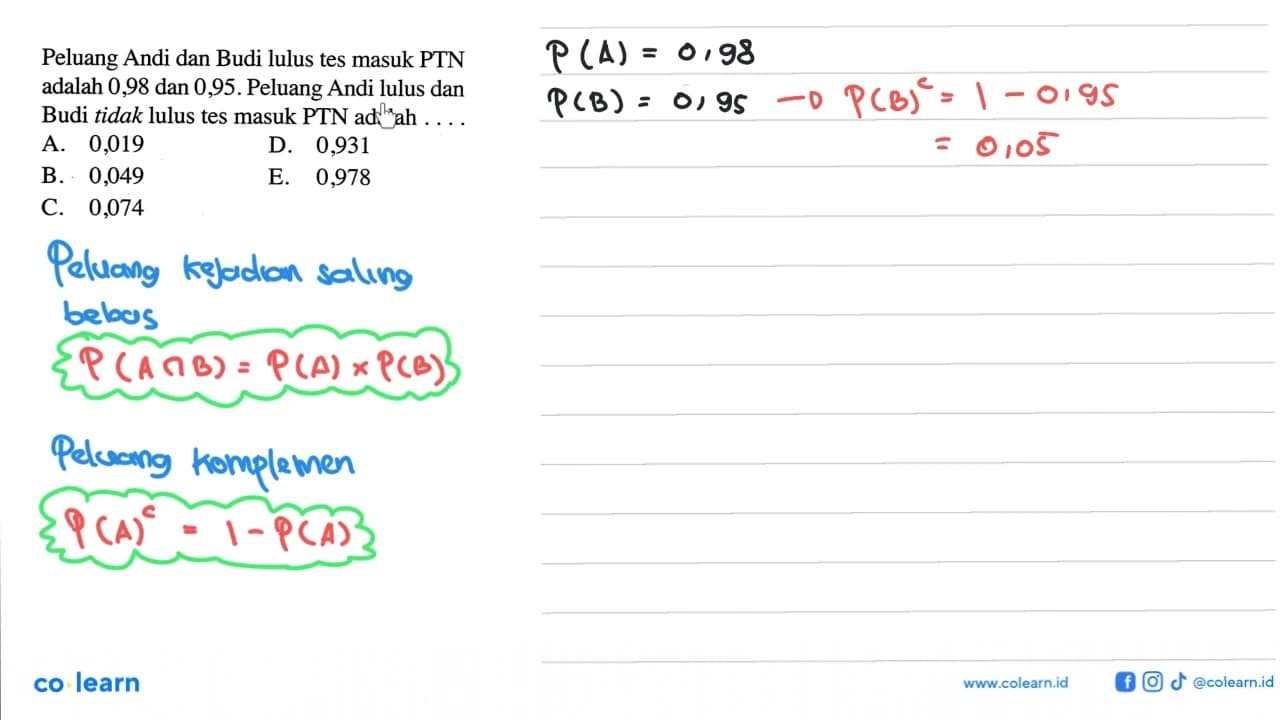 Peluang Andi dan Budi lulus tes masuk PTN
adalah 0,98 dan 0,95. Peluang Andi lulus dan
Budi tidak lulus tes masuk PTN ad ah . . . .
A. 0,019 D. 0,931
B. 0,049 E. 0,978
C. 0,074
Peluang kejadian saling
bebas
P(A∩B) = P(A) × P(B)
Peluang komplemen
P(A)ᶜ = 1 - P(A)
P(A) = 0,98
P(B) = 0,95 → P(B)ᶜ = 1 - 0,95
= 0,05
co learn
www.colearn.id
@colearn.id